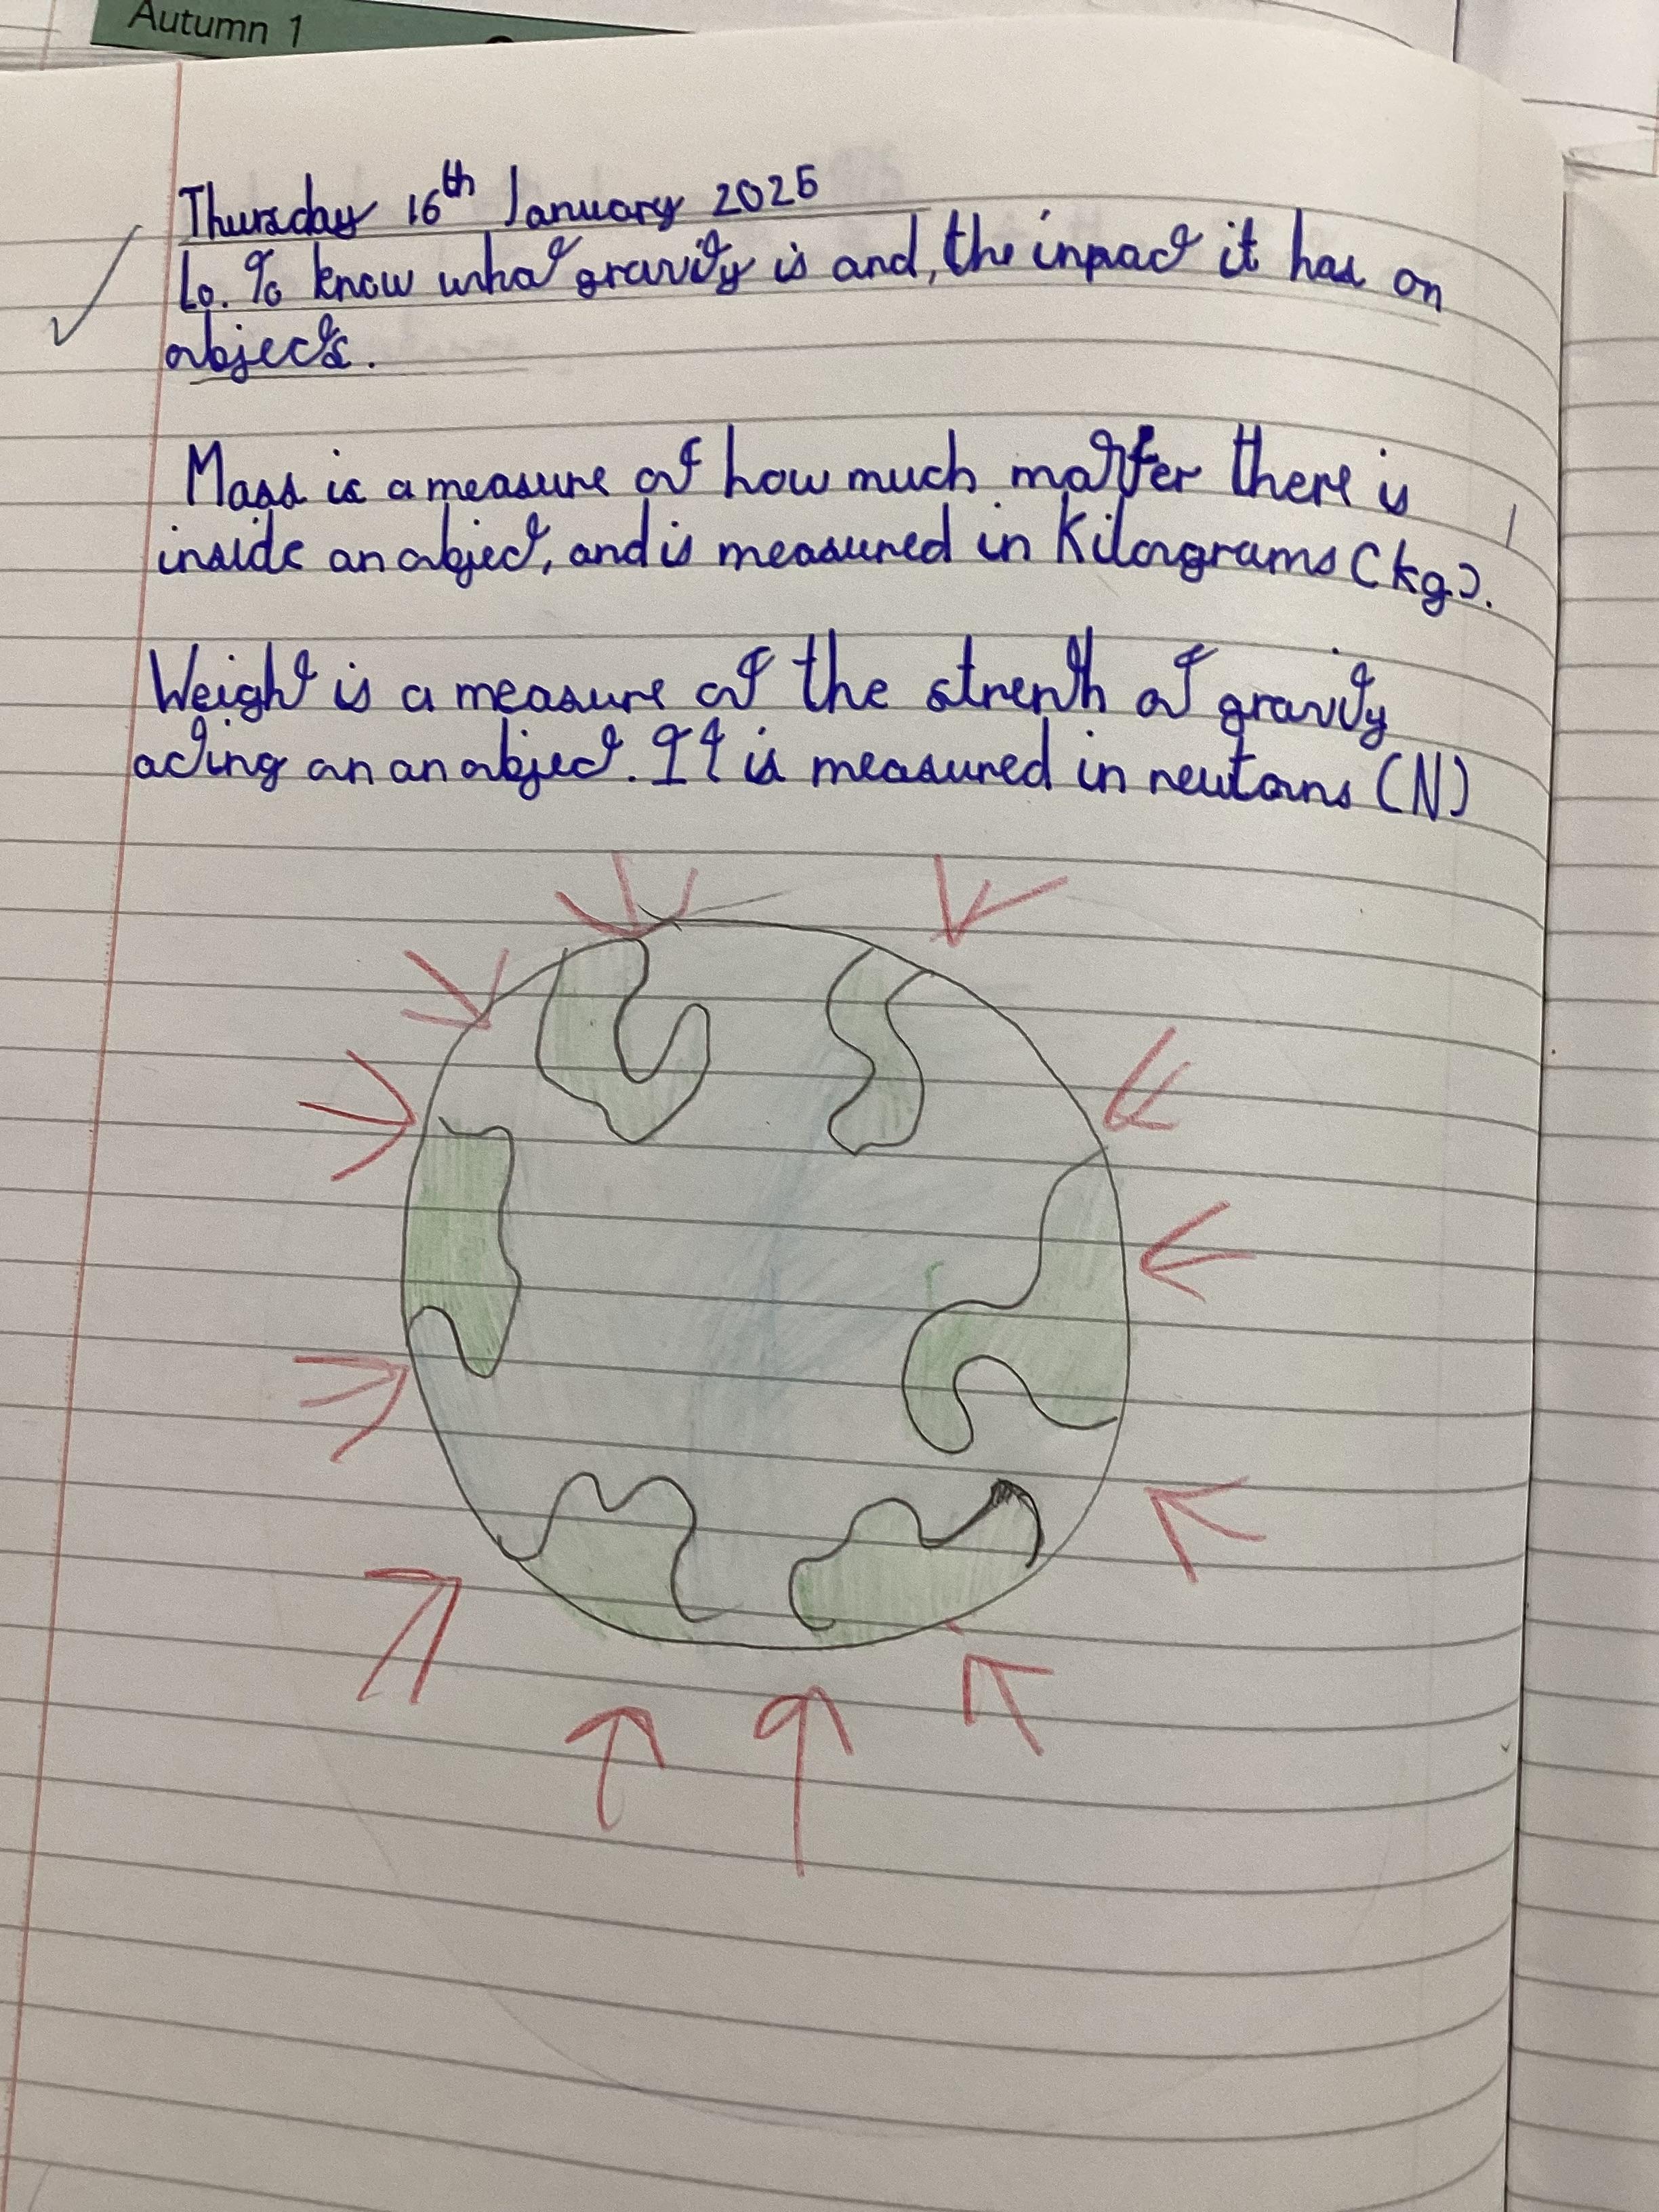 Autumn 1
Thursday 16th January 2025
Lo. To know what gravity is and, the inpact it has on
objects.
Mass is a measure of how much matter there is
inside an object, and is measured in Kilograms (kg).
Weight is a measure of the strenth of gravity
acting on an object. It is measured in newtons (N)